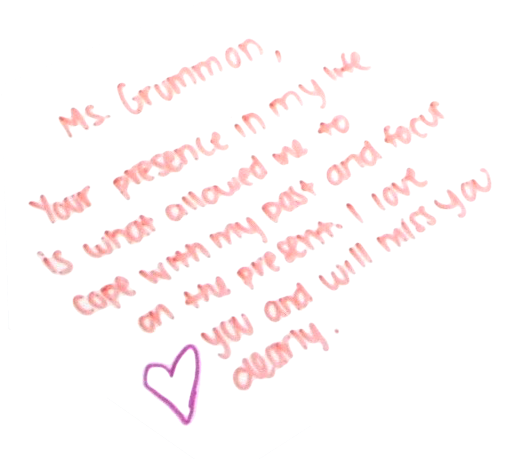 Ms. Grummon,
Your presence in my life
is what allowed me to
cope with my past and focus
on the present. I love
you and will miss you
dearly.